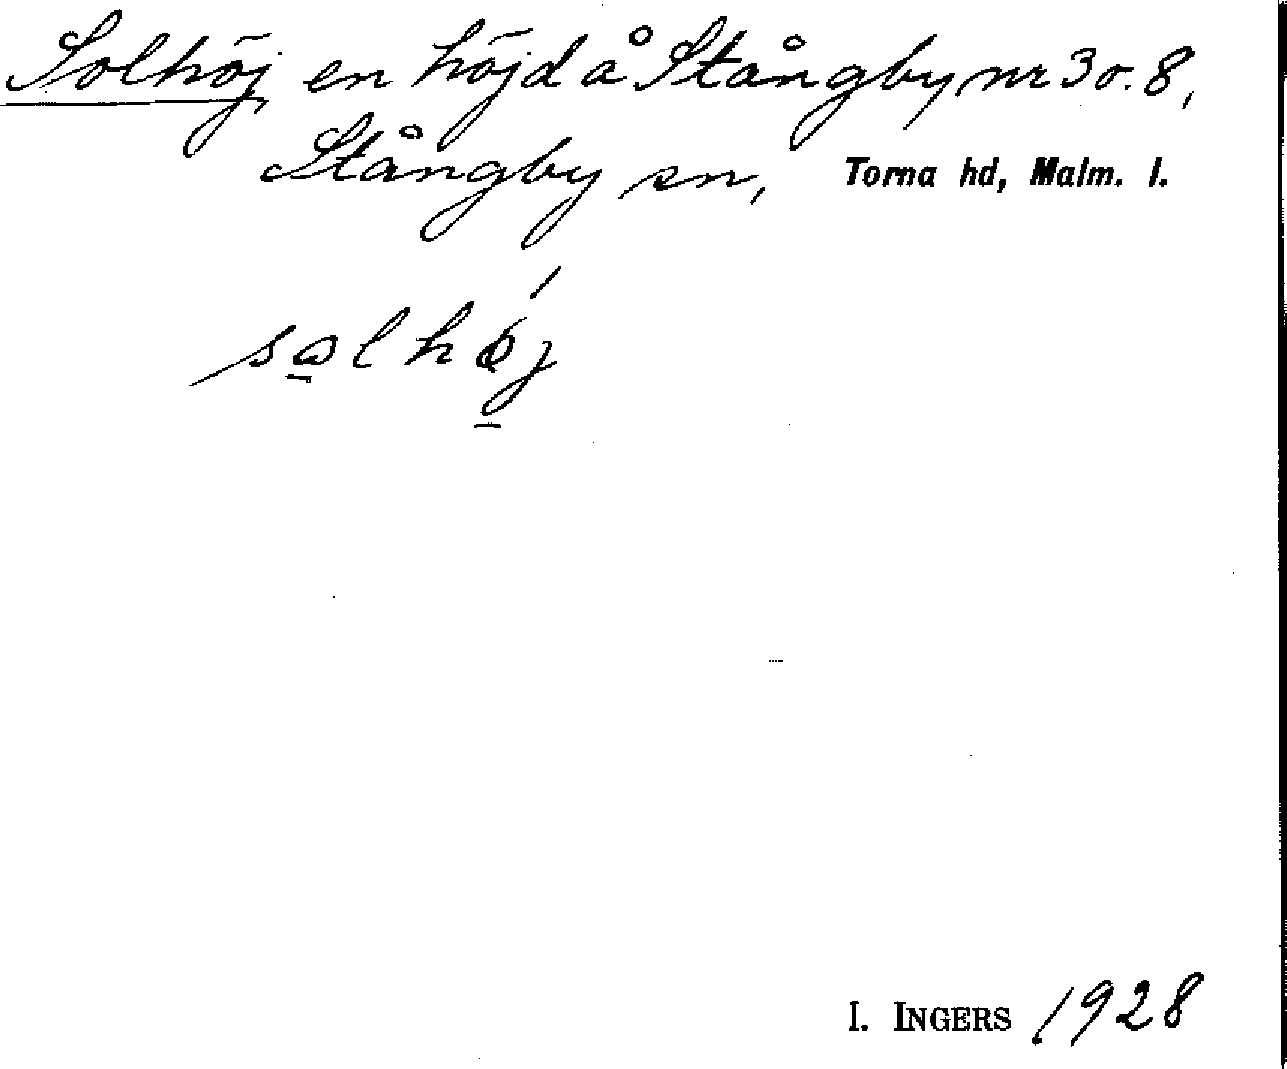 Solhöj en höjd å Stångby nr 3 o. 8,
Stångby sn, Torna hd, Malm. l.
I. INGERS 1928